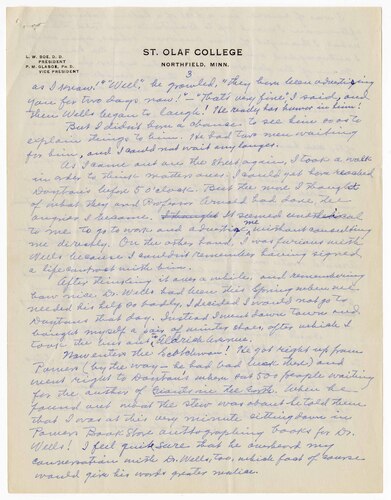 L. W. BOE, D. D.
PRESIDENT
P. M. GLASOE, PH. D.
VICE PRESIDENT
ST. OLAF COLLEGE
NORTHFIELD, MINN.
3
as I know!" "Well," he growled, "they have been advertising
you for two days now!" - "That's very fine," I said, and
then Wells began to laugh! He really has humor in him!
But I didn't have a chance to see him so as to
explain things to him. He had two men waiting
for him, and I could not wait any longer.
As I came out on the street again, I took a walk
in order to think matters over. I could yet have reached
Dayton's before 5 o'clock. But the more I thought
of what they and Professor Arnold had done, the
angrier I became. I thought It seemed
to me to go to work and advertise me without consulting
me directly. On the other hand, I was furious with
Wells because I couldn't remember having signed
a life contract with him.
After thinking it over a while, and remembering
how nice Dr. Wells had been this Spring when we
needed his help so badly, I decided I would not go to
Dayton's that day. Instead I went down town and
bought myself a pair of winter shoes, after which I
took the bus out Aldrich Avenue.
Now enters the Scotchman! He got right up from
Powers (by the way - he had had lunch there) and
went right to Dayton's where sat 50 people waiting
for the author of Giants in the Earth. When he
found out what the stew was about he told them
that I was at this very minute sitting down in
Powers Book Store autographing books for Dr.
Wells! I feel quite sure that he overheard my
conversation with Dr. Wells, too, which fact of course
would give his words greater